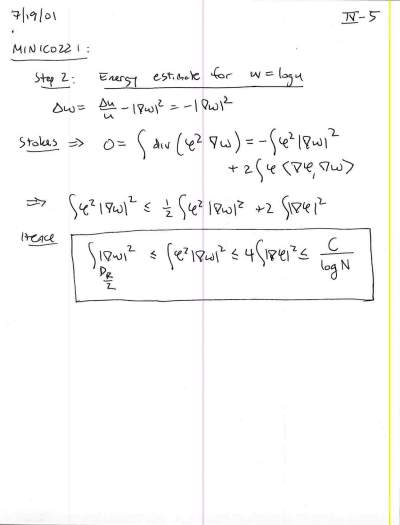 7/19/01
IV-5
MINICOZZI:
Step 2: Energy estimate for w = log u
Δw = Δu/u - |∇w|² = -|∇w|²
Stokes ⇒ 0 = ∫ div (φ² ∇w) = -∫φ² |∇w|²
+ 2∫φ <∇φ, ∇w>
⇒ ∫φ² |∇w|² ≤ 1/2 ∫φ² |∇w|² + 2 ∫|∇φ|²
Hence
∫_{D_{R/2}} |∇w|² ≤ ∫φ² |∇w|² ≤ 4∫|∇φ|² ≤ C/log N